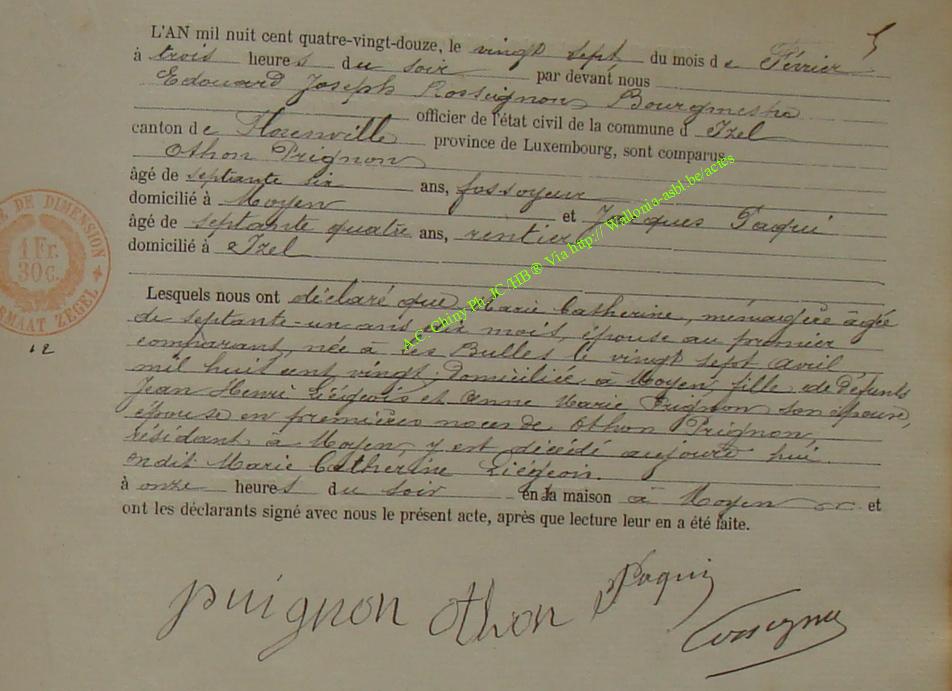 L'AN mil nuit cent quatre-vingt-douze, le vingt sept du mois de Février 5
à trois heures du soir par devant nous
Edouard Joseph Rossignon Bourgmestre
officier de l'état civil de la commune d Izel
canton de Florenville province de Luxembourg, sont comparus
Othon Prignon
âgé de septante six ans, fossoyeur
domicilié à Moyen et Jacques Paqui
âgé de septante quatre ans, rentier
domicilié à Izel
Lesquels nous ont déclaré que Marie Catherine, ménagère âgée
de septante-un ans dix mois, épouse au premier
comparant, née à Les Bulles le vingt sept avril
mil huit cent vingt, domiciliée à Moyen fille de défunts
Jean Henri Liégeois et Anne Marie Prignon son épouse,
épouse en premières noces de Othon Prignon,
résidant à Moyen, y est décédé aujourd'hui
ondit Marie Catherine Liégeois.
à onze heures du soir en la maison à Moyen et
ont les déclarants signé avec nous le présent acte, après que lecture leur en a été faite.
puignon othon Paqui
Rossignon
DE DIMENSION
1 Fr.
30 C.
FORMAAT ZEGEL
12
A.C. Chiny Ph. JC /HB ® Via http:// Wallonia-asbl.be/actes